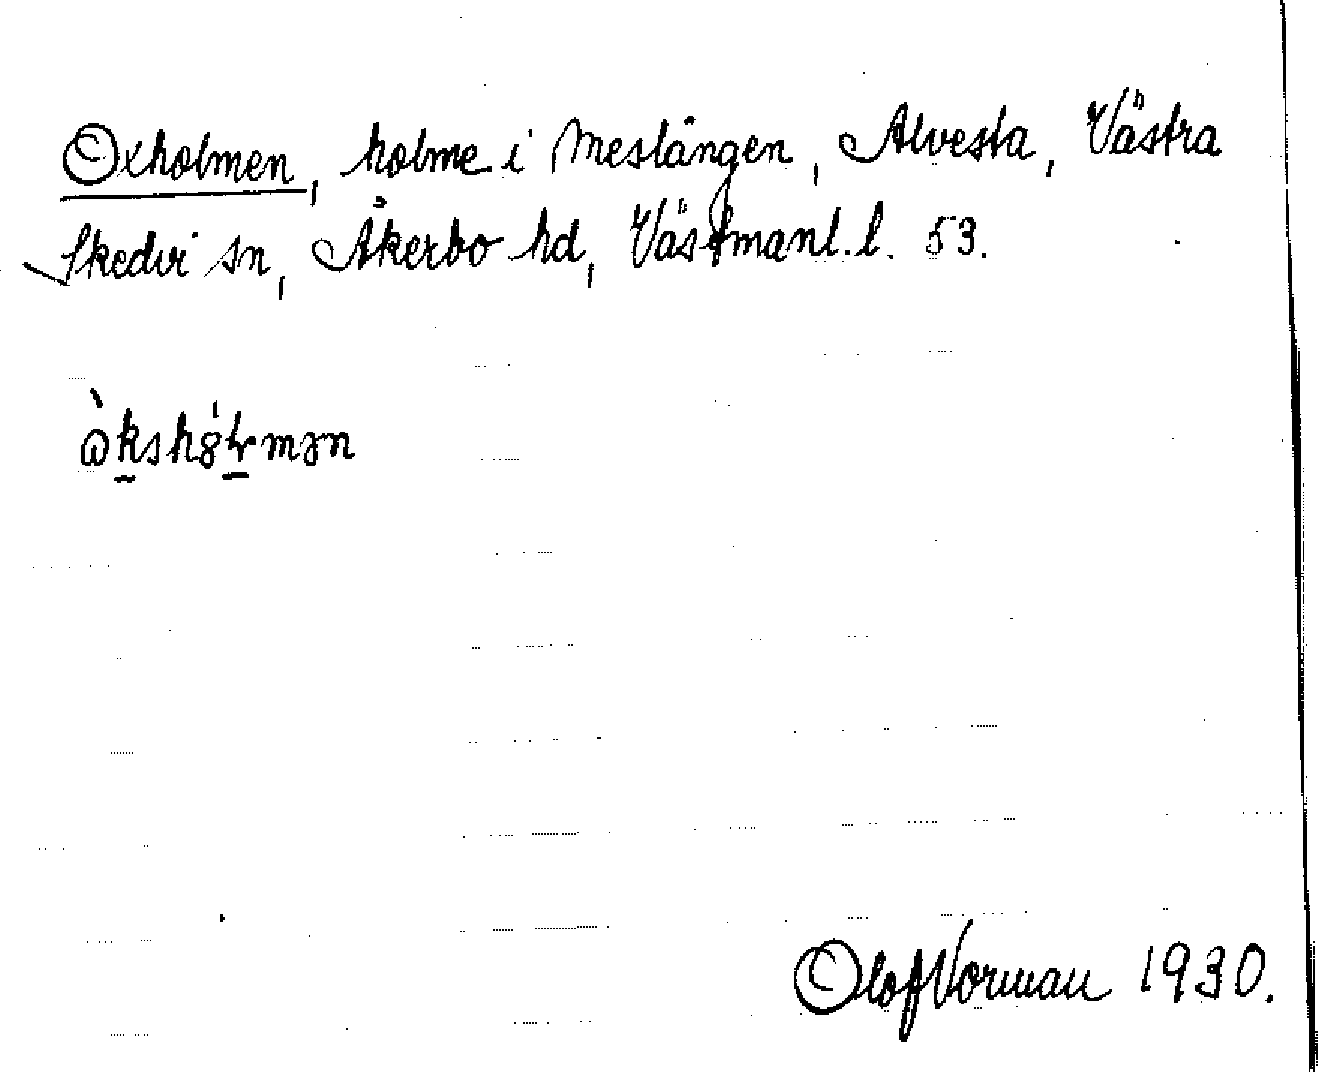 Oxholmen, holme i Meslången, Alvesta, Västra
Skedvi sn, Åkerbo hd, Västmanl. l. 53.
Olof Norman 1930.